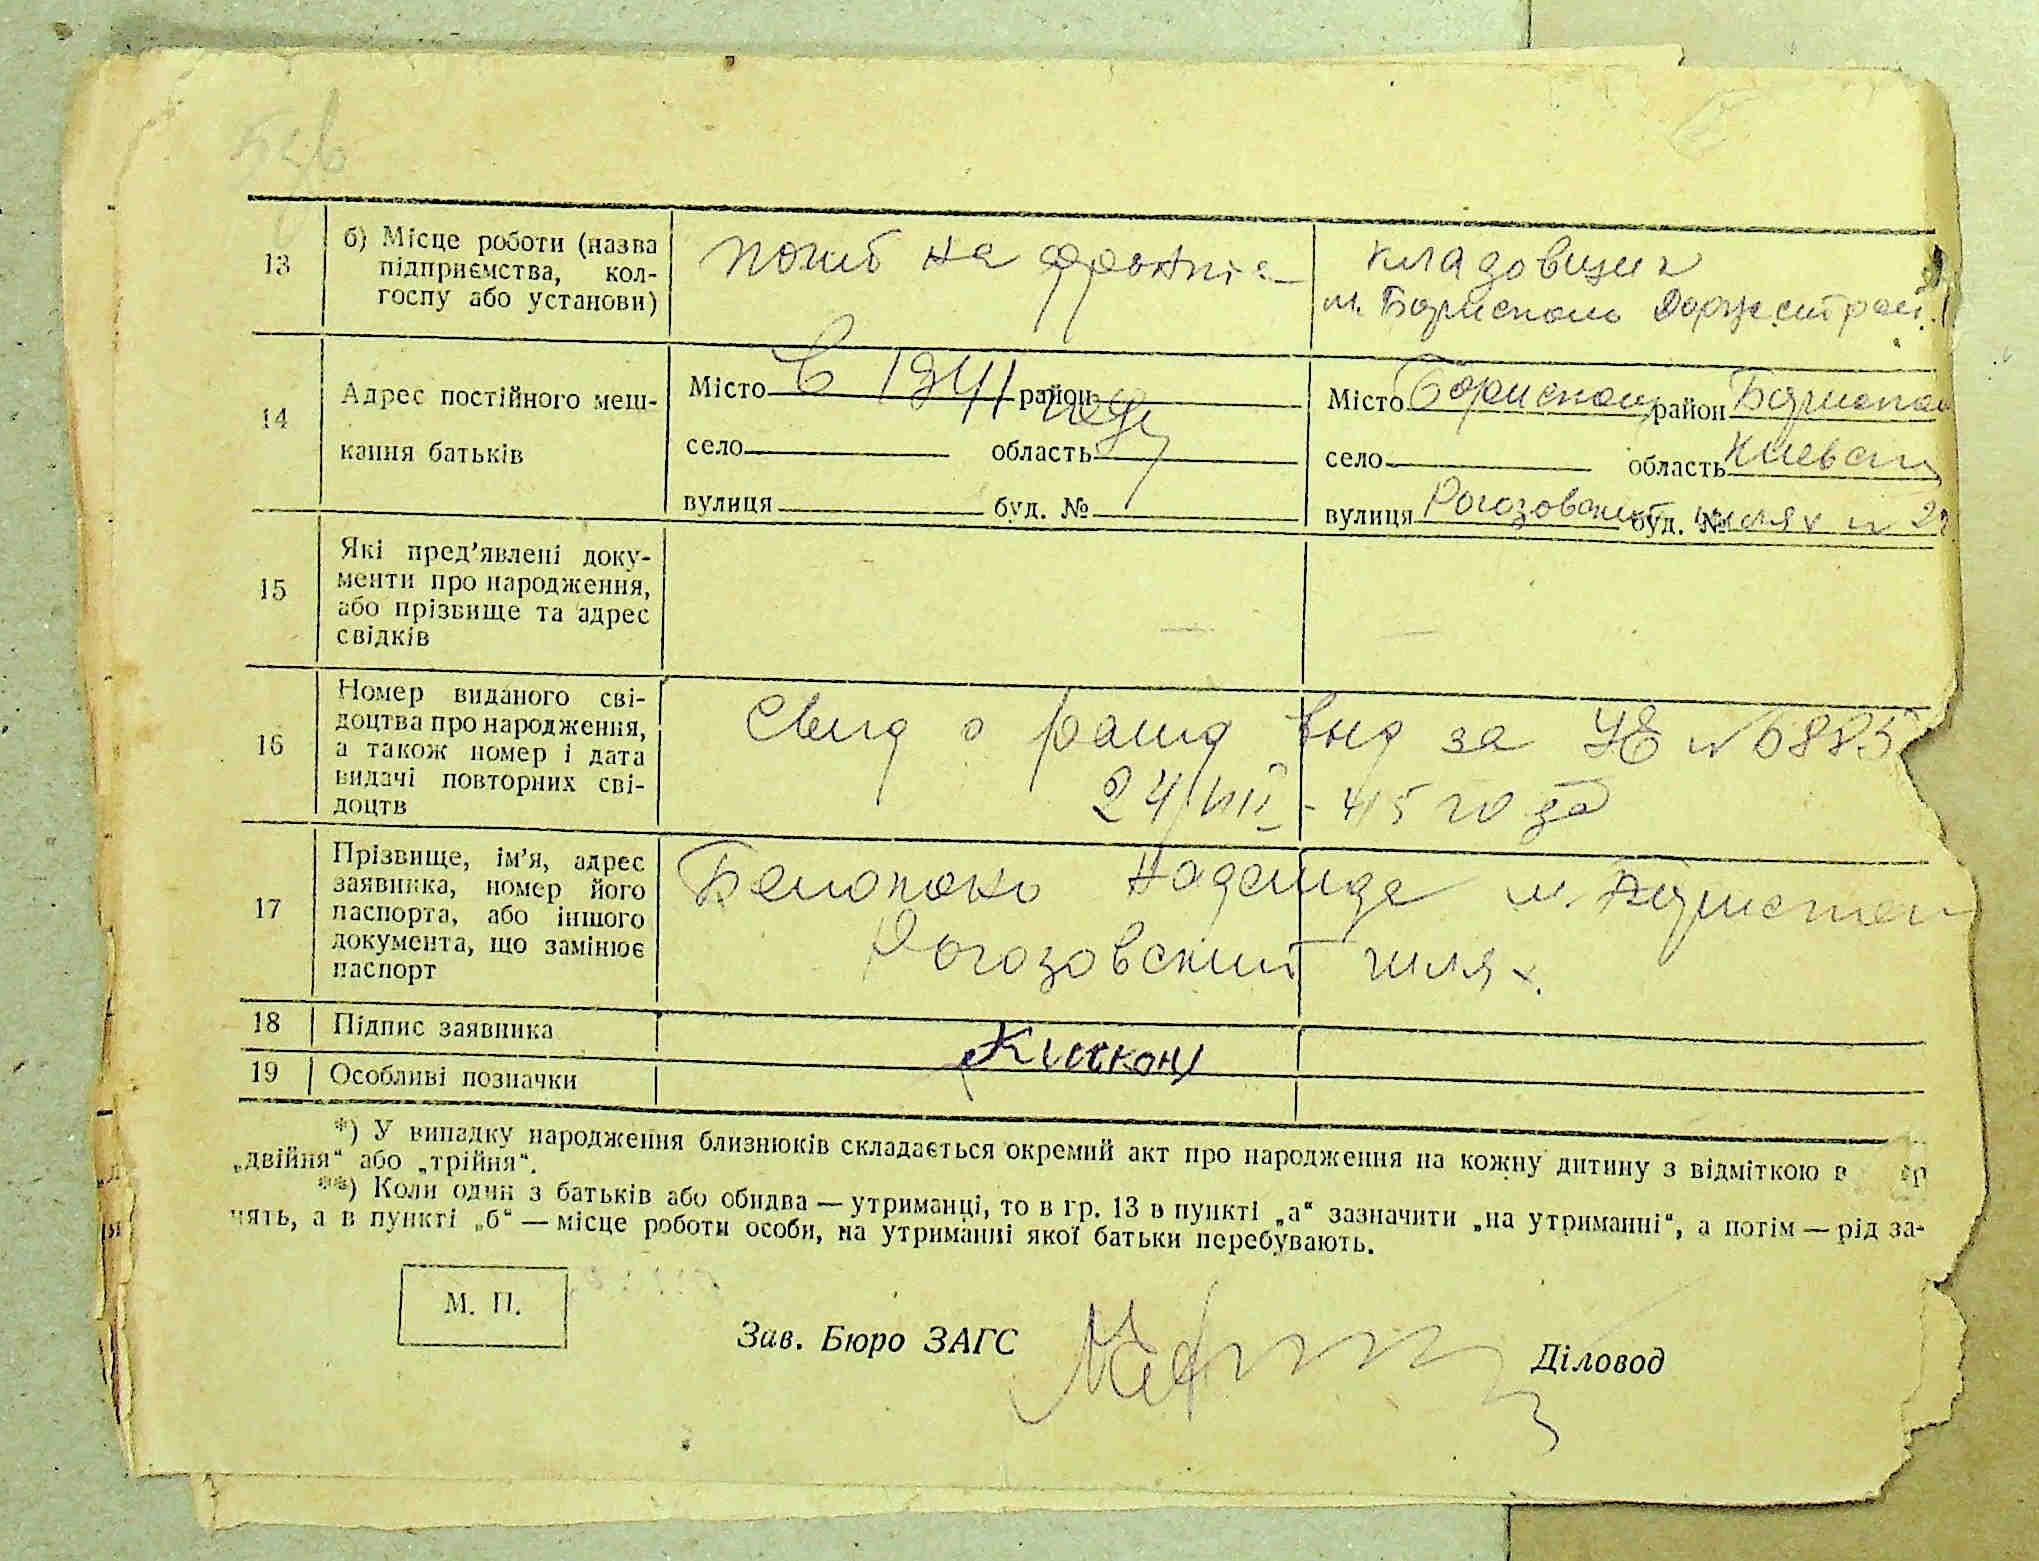 13
б) Місце роботи (назва
підприємства, кол-
госпу або установи)
погиб на фронте
кладовщик
м. Борисполь Доржестрой
14
Адрес постійного меш-
кання батьків
Місто В 1941 район году
село область
вулиця буд. №
Місто Борисполь район Борисполь
село область Киевск
вулиця Рогозовский шлях буд. № 22
15
Які пред’явлені доку-
менти про народження,
або прізвище та адрес
свідків
16
Номер виданого сві-
доцтва про народження,
а також номер і дата
видачі повторних сві-
доцтв
Свид о рожд выд за УЕ № 6885
24/VIII - 45 года
17
Прізвище, ім’я, адрес
заявника, номер його
паспорта, або іншого
документа, що замінює
паспорт
Надежда м. Борисполь
Рогозовский шлях.
18
Підпис заявника
19
Особливі позначки
*) У випадку народження близнюків складається окремий акт про народження на кожну дитину з відміткою в
„двійня“ або „трійня“.
**) Коли один з батьків або обидва — утриманці, то в гр. 13 в пункті „а“ зазначити „на утриманні“, а потім — рід за-
нять, а в пункті „б“ — місце роботи особи, на утриманні якої батьки перебувають.
М. П.
Зав. Бюро ЗАГС
Діловод